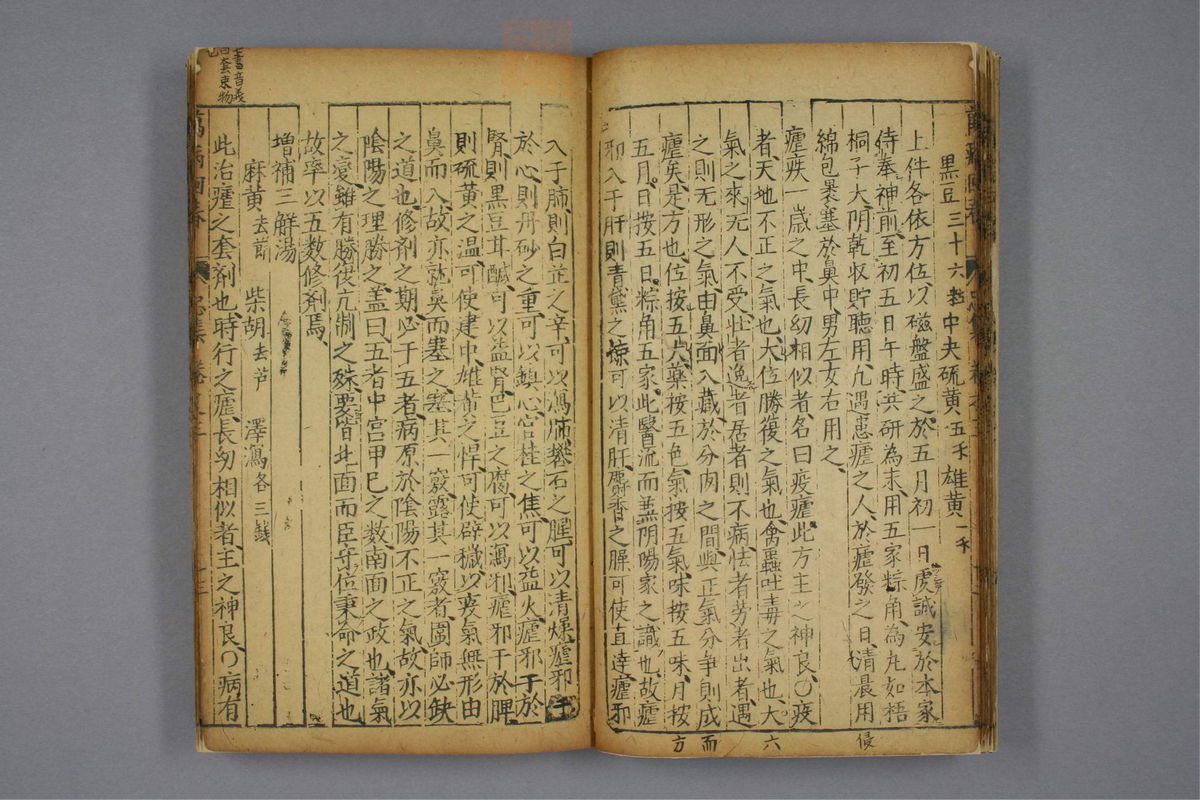 黒豆三十六粒中央硫黄五禾雄黄一禾
上件各依方位以磁盤盛之於五月初一日虔誠安於本家
侍奉神前至初五日午時共研為末用五家粽角為丸如梧
桐子大阴乾収貯聴用凢遇患瘧之人於瘧發之日清晨用
綿包裹塞於鼻中男左女右用之
瘧疾一歳之中長幼相似者名曰疫瘧此方主之神良〇疫
者天地不正之氣也六位勝復之氣也禽蟲吐毒之氣也大
氣之來无人不受壮者逸者居者則不病怯者劳者出者遇
之則无形之氣由鼻面入藏於分肉之間與正氣分争則成
瘧矣是方也位按五方藥按五色氣按五氣味按五味月按
五月日按五日粽角五家此醫流而蓋阴陽家之識也故瘧
邪入于肝則青黛之凉可以清肝麝香之臊可使直逹瘧邪
侵
六
而
方
入于肺則白芷之辛可以瀉肺礬石之腥可以清燥瘧邪干
於心則丹砂之重可以鎮心官桂之焦可以益火瘧邪干於
腎則黒豆其醎可以益腎巴豆之腐可以瀉邪瘧邪干於脾
則硫黄之温可使建中雄黄之悍可使辟穢以疫氣無形由
鼻而入故亦就鼻而塞之塞其一竅露其一竅者圍師必缺
之道也修剤之期必于五者病原於陰陽不正之氣故亦以
陰陽之理勝之盖曰五者中宮甲巳之数南面之政也諸氣
之変雖有勝復亢制之殊要皆北面而臣守位秉命之道也
故寧以五数修剤焉
増補三解湯
麻黄去節 柴胡去芦 澤瀉各三錢
此治瘧之套剤也時行之瘧長幼相似者主之神良〇病有